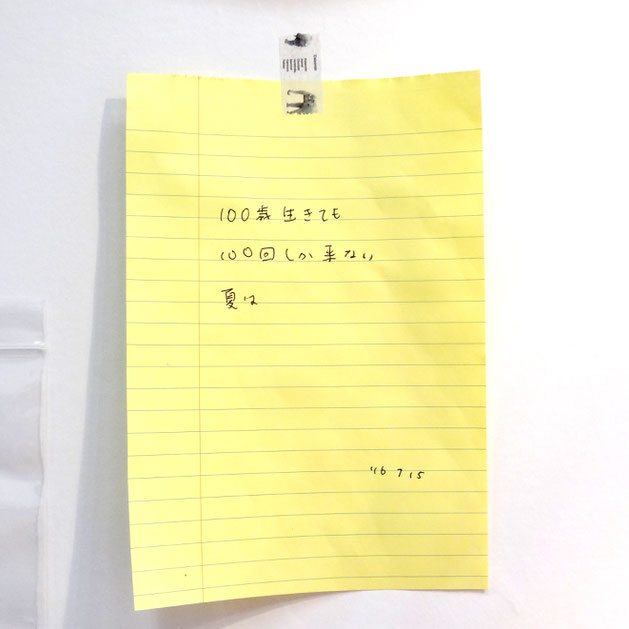 100歳生きても
100回しか来ない
夏は
'16 7 15